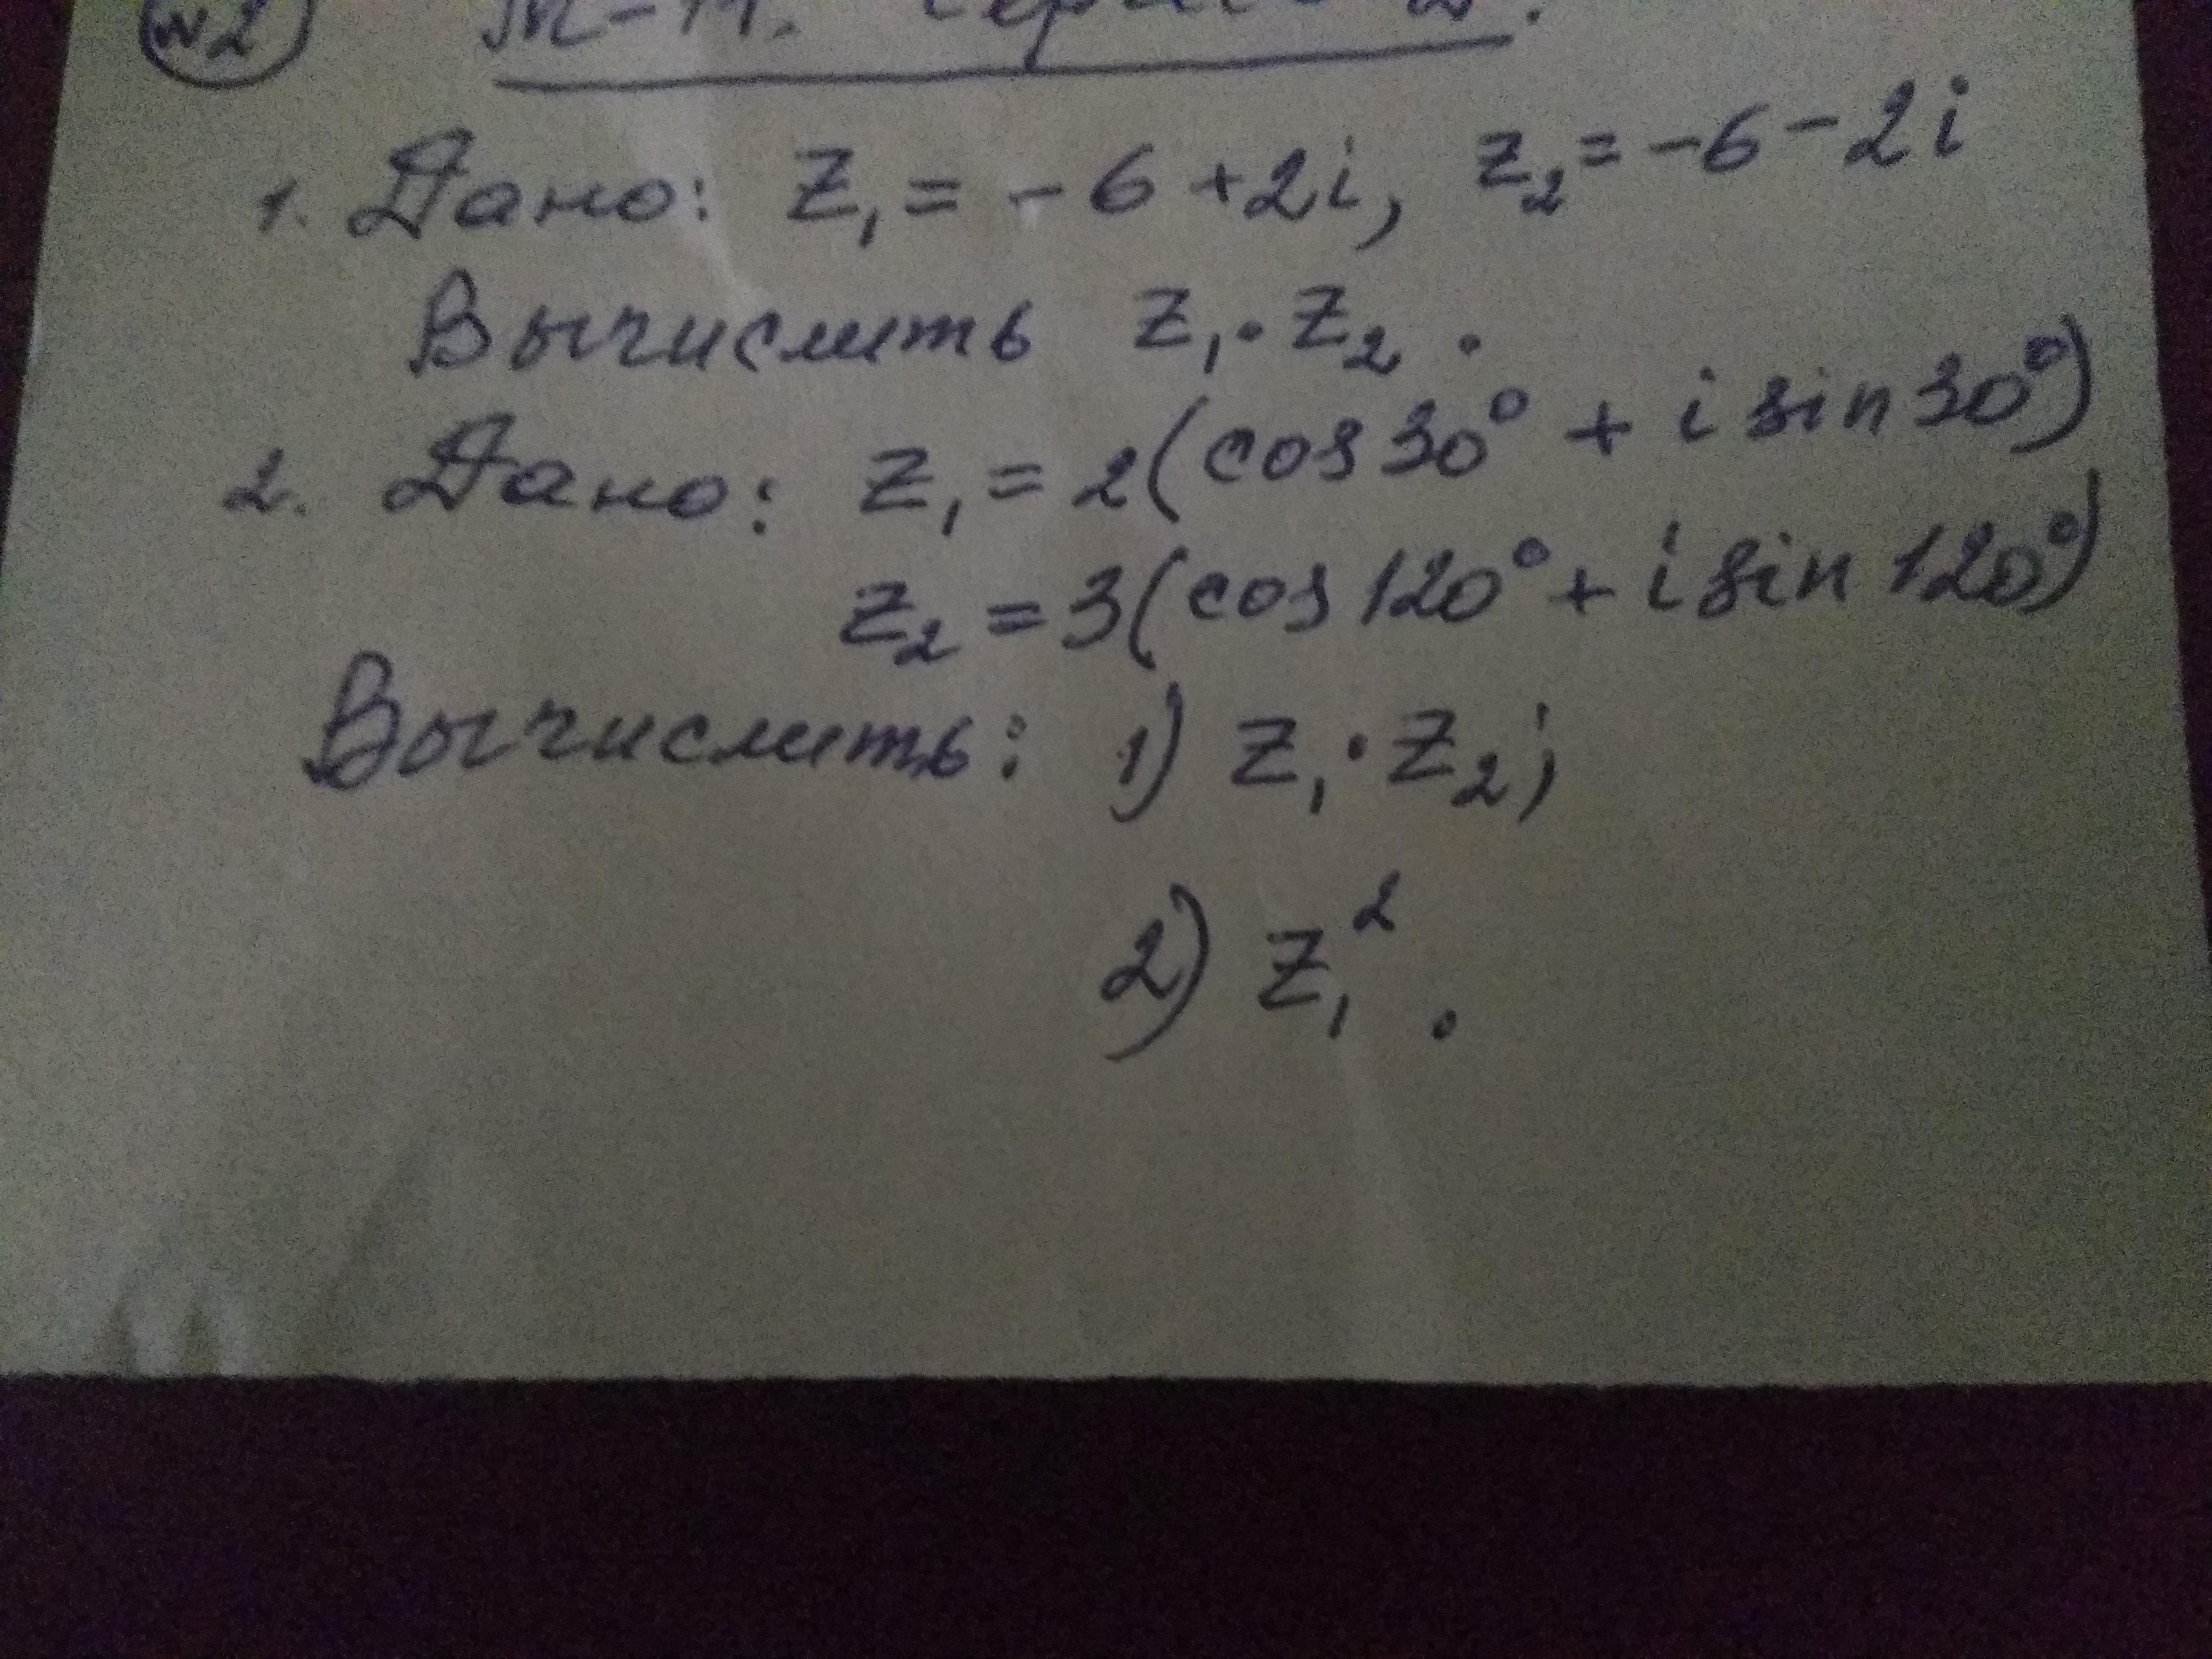 №2
1. Дано: z₁ = -6 + 2i, z₂ = -6 - 2i
Вычислить z₁ · z₂ .
2. Дано: z₁ = 2(cos 30° + i sin 30°)
z₂ = 3(cos 120° + i sin 120°)
Вычислить: 1) z₁ · z₂;
2) z₁² .